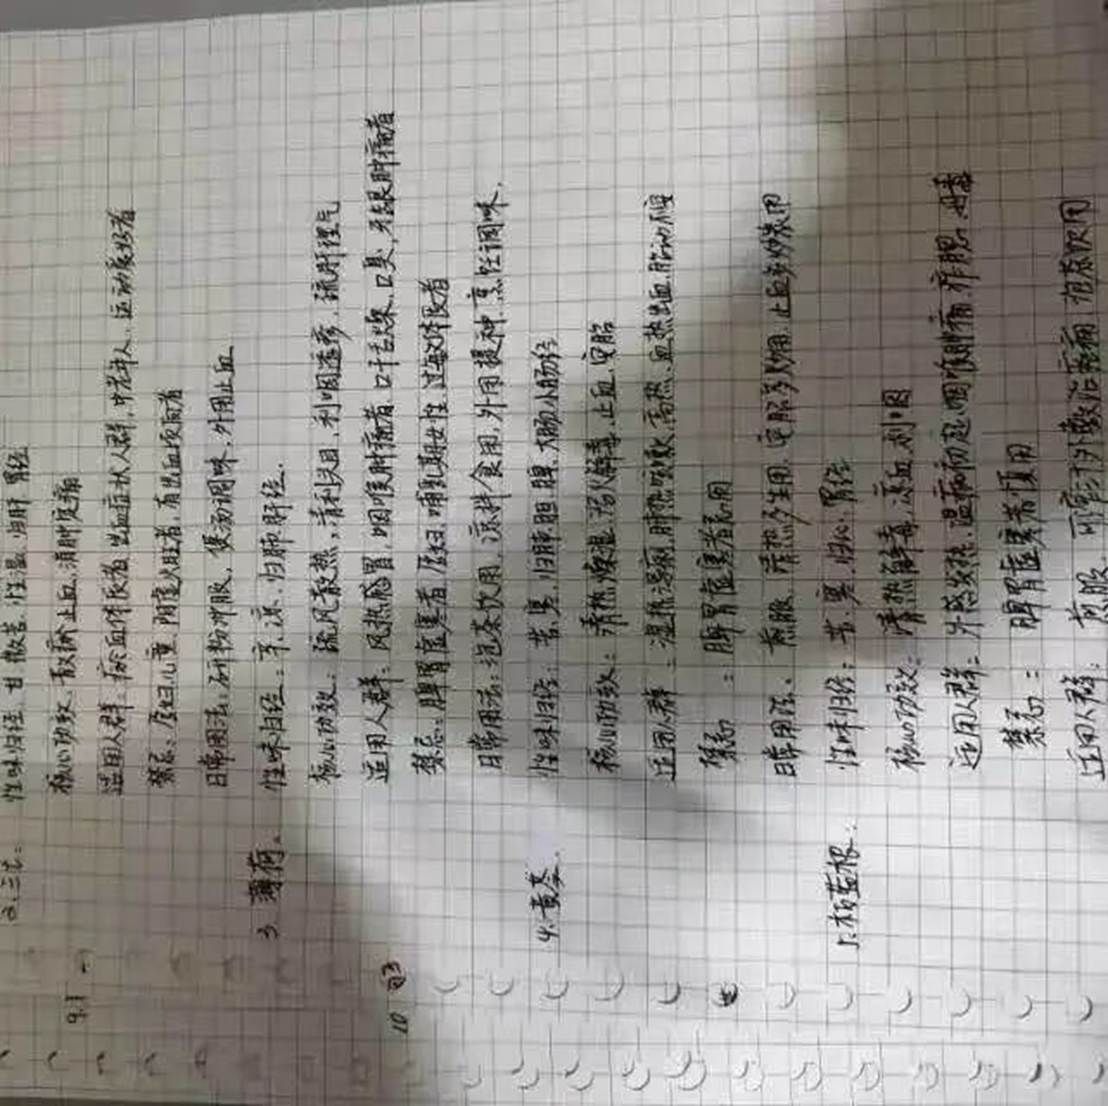 2. 三七: 性味归经: 甘 微苦, 性温, 归肝 胃经
核心功效: 散瘀止血, 消肿定痛
适用人群: 瘀血体质者 出血症状人群, 中老年人, 运动爱好者
禁忌: 孕妇 儿童 阴虚火旺者, 有出血倾向者
日常用法: 研粉冲服, 煲汤调味, 外用止血
3. 薄荷. 性味归经: 辛, 凉, 归肺 肝经.
核心功效: 疏风散热, 清利头目, 利咽透疹, 疏肝理气
适用人群: 风热感冒, 咽喉肿痛者, 口干舌燥, 口臭, 牙龈肿痛者
禁忌: 脾胃虚寒者 孕妇 哺乳期女性 过敏体质者
日常用法: 泡茶饮用, 凉拌食用, 外用提神, 烹饪调味,
4. 黄芩. 性味归经: 苦, 寒, 归肺 胆 脾 大肠 小肠经
核心功效: 清热燥湿, 泻火解毒, 止血, 安胎
适用人群: 湿热 肺热咳嗽, 高热, 血热出血, 胎动不安
禁忌: 脾胃虚寒者忌用
日常用法: 煎服, 清热多生用, 安胎多炒用, 止血多炒炭用
5. 板蓝根. 性味归经: 苦, 寒, 归心, 胃经
核心功效: 清热解毒, 凉血, 利咽
适用人群: 外感发热, 温病初起, 咽喉肿痛, 痄腮, 丹毒
禁忌: 脾胃虚寒者慎用
适用人群: 煎服, 泡茶饮用
9.1
10